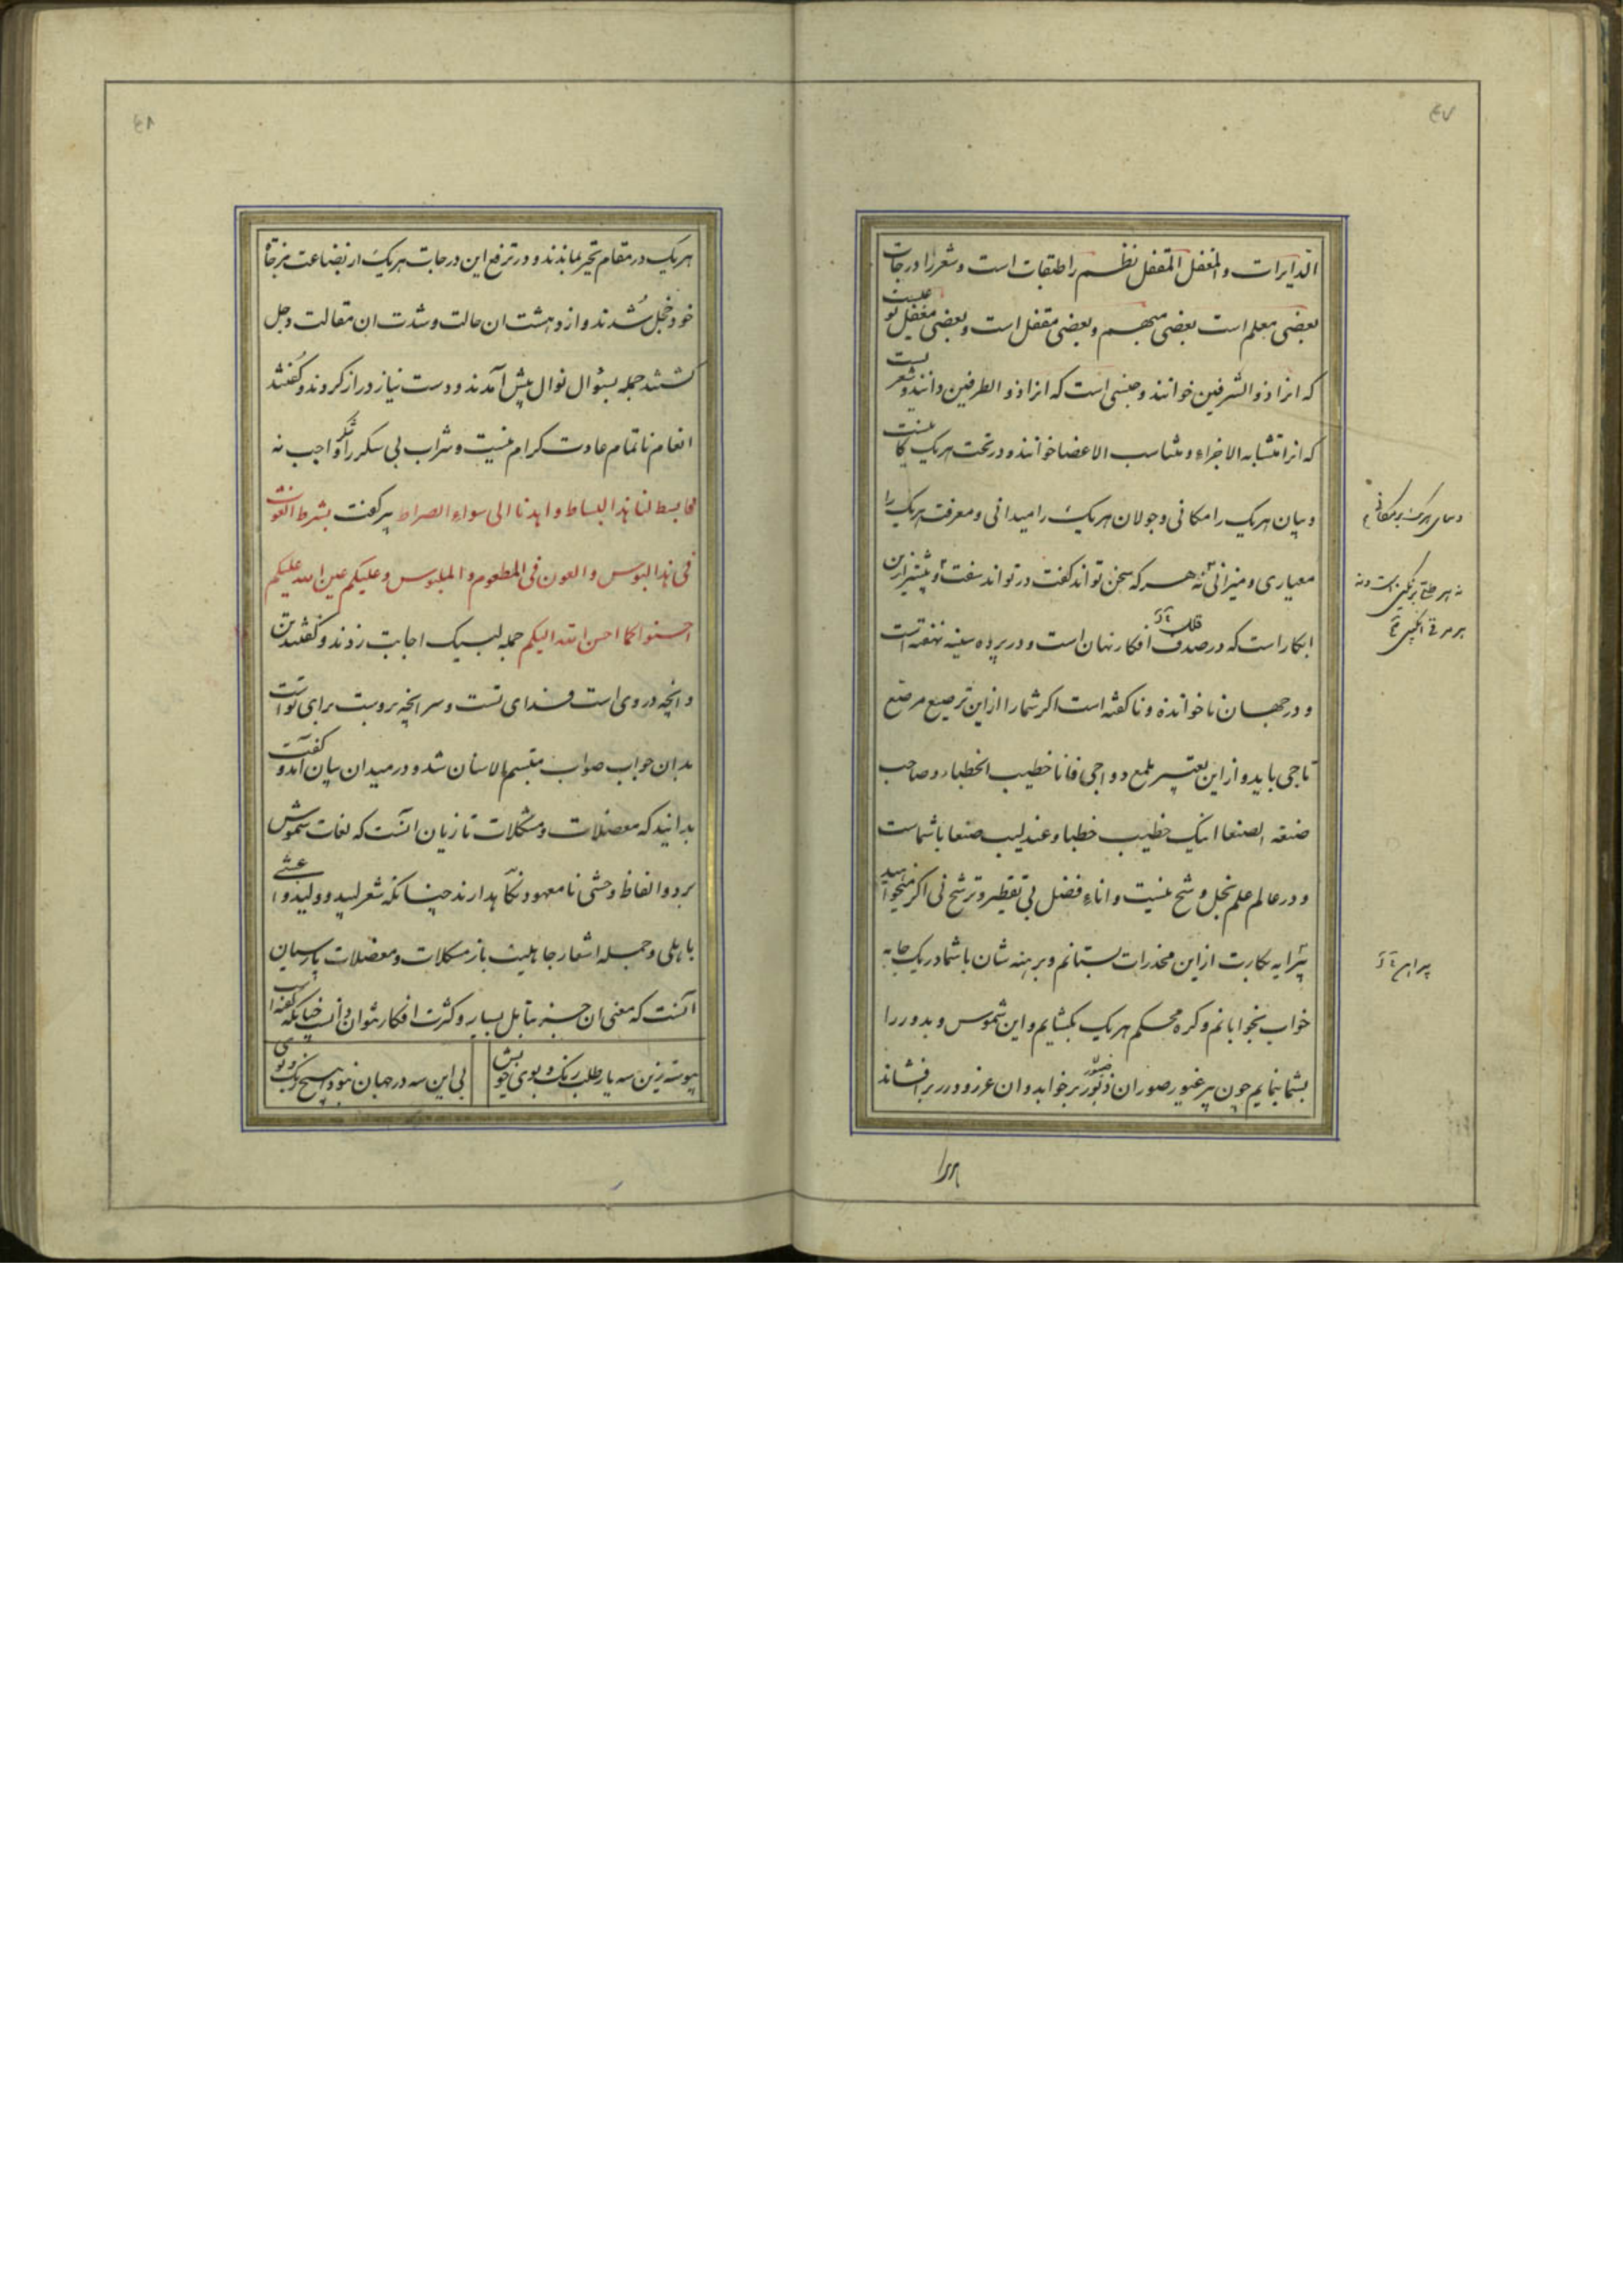 ۴۷
الدایرات والمغفل المقفل نظم را طبقات است و شعر را درجات
بعضی معلم است بعضی مبهم و بعضی مقفل است و بعضی مغفل نوعیست
که انرا ذو الشرفین خوانند و جنسی است که انرا ذو الطرفین دانند و شعریست
که انرا متشابه الاجزاء و متناسب الاعضا خوانند و در تحت هر یک
و بیان هر یک را مکانی و جولان هر یک را میدانی و معرفت هر یک را
معیاری و میزانی نه هر که سخن تواند گفت در تواند سفت و بیشتر ازین
ابکار است که در صدف افکار نهان است و در پرده سینه نهفته است
و در جهان ناخوانده و ناگفته است اکر شما را از این ترصیع مرصع
تاجی باید و از این ملمع دواجی فانا خطیب الخطباء و صاحب
صنعه الصنعا اینک خطیب خطبا و عندلیب صنعا با شماست
و در عالم علم بخل و شح نیست و اناء فضل بی تقطیر و ترشح نی اکر میخواهید
پیرایه بکارت از این مخدرات بستانم و برهنه شان با شما در یک جامه
خواب بخوابانم و کره محکم هر یک بکشایم و این شموس و بدور را
بشما نمایم چون پیر غیور صور ان بر خواند و ان غرر و درر بر افشاند
هر یک در مقام تحیر بماندند و در ترفع این درجات هر یک از بضاعت مزجاة
خود خجل شدند و از دهشت ان حالت و شدت ان مقالت وجل
کشتند جمله بسؤال نوال پیش آمدند و دست نیاز دراز کردند و کفتند
انعام ناتمام عادت کرام نیست و شراب بی سکر را شکر واجب نه
فابسط لنا هذا البساط و اهدنا الی سواء الصراط پیر کفت بشرط الغوث
فی هذا البوس والعون فی المطعوم والملبوس وعلیکم عین الله علیکم
احسنوا کما احسن الله الیکم جمله لبیک اجابت زدند و کفتند تن
و انچه در وی است فدای تست و سر انچه بروست برای تو است
بدان جواب صواب متبسم الاسنان شد و در میدان بیان آمد و کفت
بدانید که معضلات و مشکلات تازیان انست که لغات شموس
برد و الفاظ وحشی نامعهود نکاهدارند چنانکه شعر لبید و ولید و اعشی
باهلی و جمله اشعار جاهلیت باز مشکلات و معضلات پارسیان
آنست که معنی ان جز بتامل بسیار و کثرت افکار نتوان دانست چنانکه کفته است
پیوسته زین سه یار طلب رنک و بوی خویش
بی این سه در جهان نبود هیچ رنک و بوی
۴۸